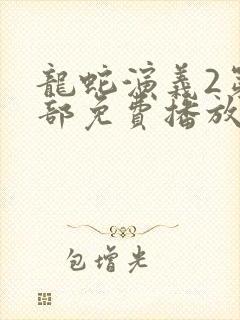 龍蛇演義2第
部免費播放
包增光